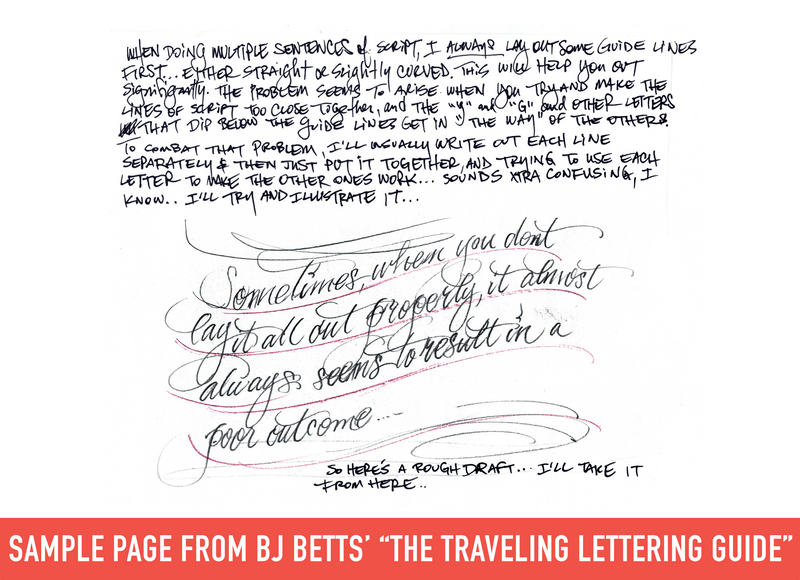 WHEN DOING MULTIPLE SENTENCES of SCRIPT, I ALWAYS LAY OUT SOME GUIDE LINES
FIRST... EITHER STRAIGHT OR Slightly CURVED. THIS WILL HELP YOU OUT
Significantly. THE PROBLEM SEEMS TO ARISE WHEN YOU TRY AND MAKE THE
LINES OF SCRIPT TOO CLOSE TOGETHER, and THE "Y" and "G" and OTHER LETTERS
THAT DIP BELOW THE Guide LINES GET IN "THE WAY" OF THE OTHERS.
TO COMBAT THAT PROBLEM, I'LL USUALLY WRITE OUT EACH LINE
SEPARATELY & THEN JUST PUT IT TOGETHER, AND TRYING TO USE EACH
LETTER TO MAKE THE OTHER ONES WORK... SOUNDS XTRA CONFUSING, I
KNOW.. I'LL TRY AND ILLUSTRATE IT...
Sometimes, when you dont
lay it all out properly, it almost
always seems to result in a
poor outcome...
SO HERE'S A ROUGH DRAFT... I'LL TAKE IT
FROM HERE..
SAMPLE PAGE FROM BJ BETTS' "THE TRAVELING LETTERING GUIDE"